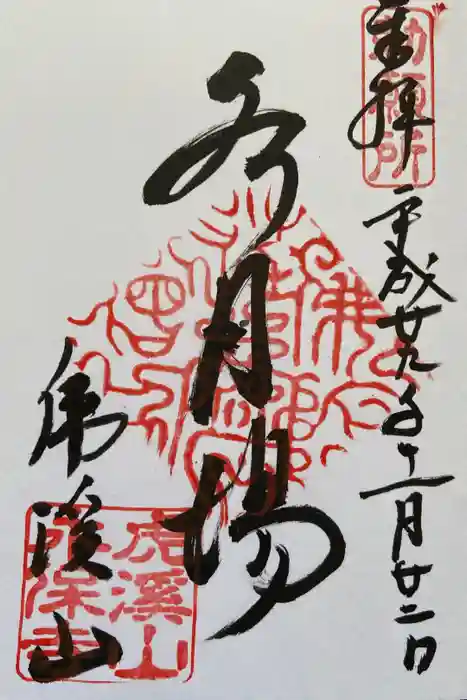 勅願所
奉拝
平成廿九年十一月廿二日
水月場
虎溪山
虎溪山
永保寺